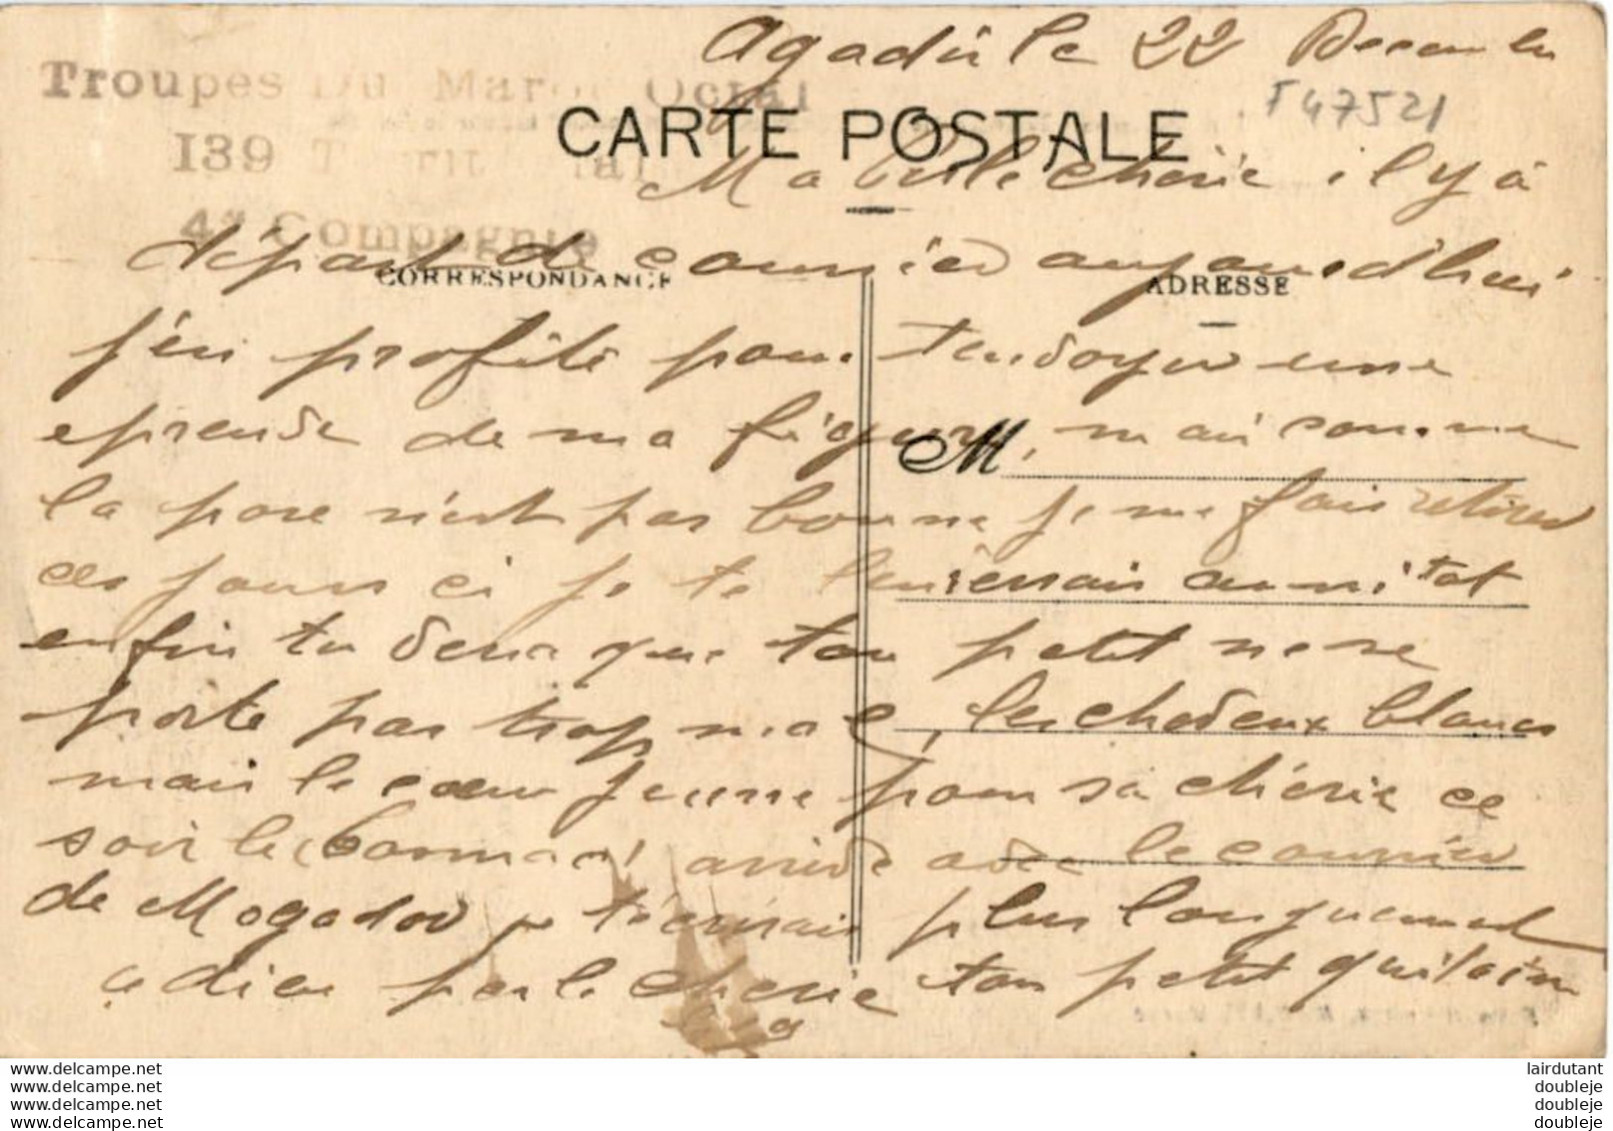 Agadir le 22 Decembre
T47521
Troupes Du Maroc Occtal
139 Territorial
4e Compagnie
CARTE POSTALE
Ma belle cherie il y a
départ de courrier aujourd'hui
CORRESPONDANCE
ADRESSE
j'en profite pour t'envoyer une
eprenve de ma figure, mais comme
M
la pose n'est pas bonne je me fais retirer
ces jours ci je te l'enverrais aussitot
enfin tu vera que ton petit ne se
porte pas trop mal, les cheveux blancs
mais le cœur jeune pour sa chérie ce
soir le arrive avec le courrier
de Mogador je t'ecrirais plus longuement
adieu perle cherie ton petit qui t'aime
www.delcampe.net
www.delcampe.net
www.delcampe.net
www.delcampe.net
lairdutant
doubleje
doubleje
doubleje